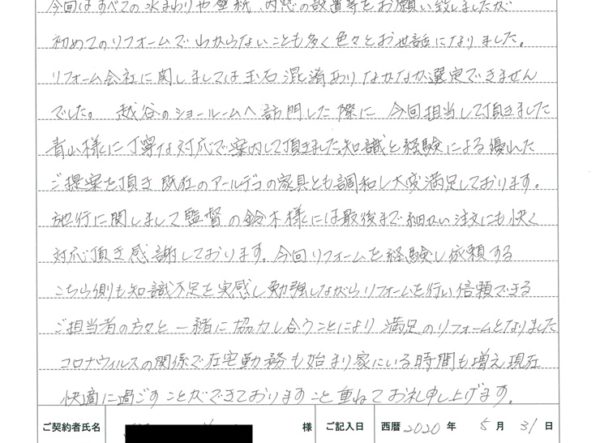 今回はすべての水まわりや壁紙、内窓の設置等をお願い致しましたが
初めてのリフォームでわからないことも多く色々とお世話になりました。
リフォーム会社に関しましては玉石混淆ありなかなか選定できません
でした。越谷のショールームへ訪問した際に今回担当して頂きました
青山様に丁寧な対応で案内して頂きました。知識と経験による優れた
ご提案を頂き既在のアールデコの家具とも調和し大変満足しております。
施行に関しまして監督の鈴木様には最後まで細かい注文にも快く
対応頂き感謝しております。今回リフォームを経験し依頼する
こちら側も知識不足を実感し勉強しながらリフォームを行い信頼できる
ご担当者の方々と一緒に協力し合うことにより満足のリフォームとなりました
コロナウィルスの関係で在宅勤務も始まり家にいる時間も増え現在
快適に過ごすことができておりますこと重ねてお礼申し上げます。
ご契約者氏名 様 ご記入日 西暦 2020 年 5 月 31 日